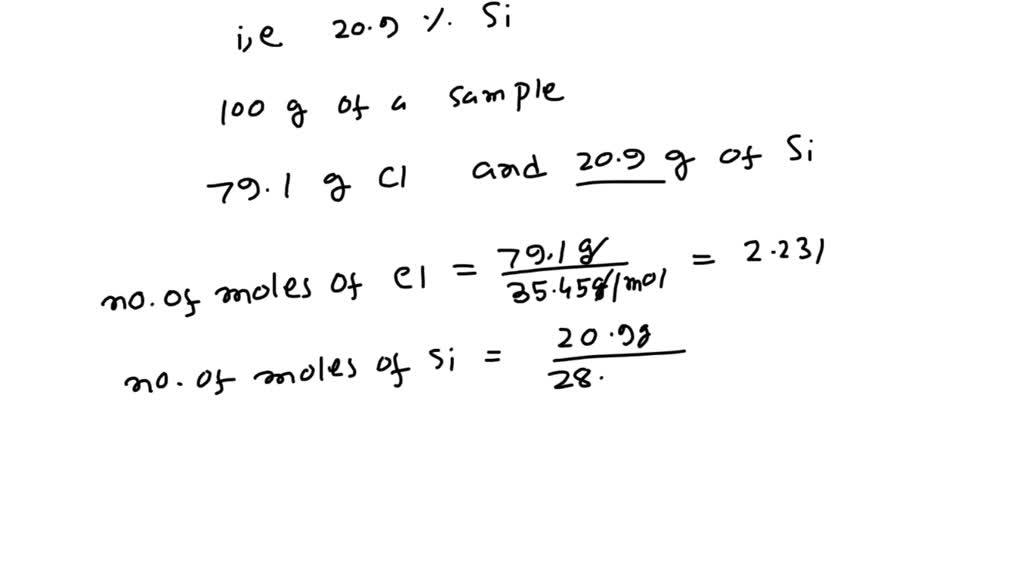 i,e 20.9 % Si
100 g of a sample
79.1 g Cl and 20.9 g of Si
no. of moles of Cl = 79.1 g / 35.45 g/mol = 2.231
no. of moles of Si = 20.9g / 28.